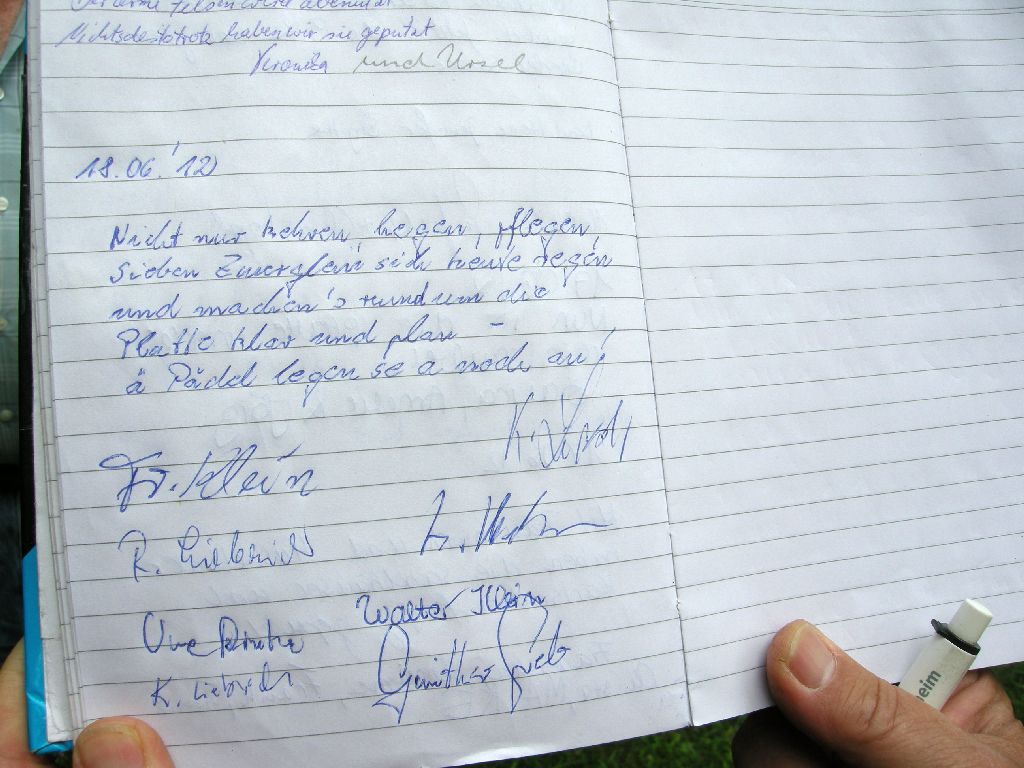 Nichtsdestotrotz haben wir sie geputzt
Veronika und Ursel
18.06.'12
Nicht nur kehren, hegen, pflegen,
sieben Zwerglein sich heute regen
und machen's rundum die
Platte klar und plan -
ä Pädd legen se a noch an!
Fr. Klein
R. Liebrich
Uwe
Walter Klein
K. Liebrich
Günther
eim